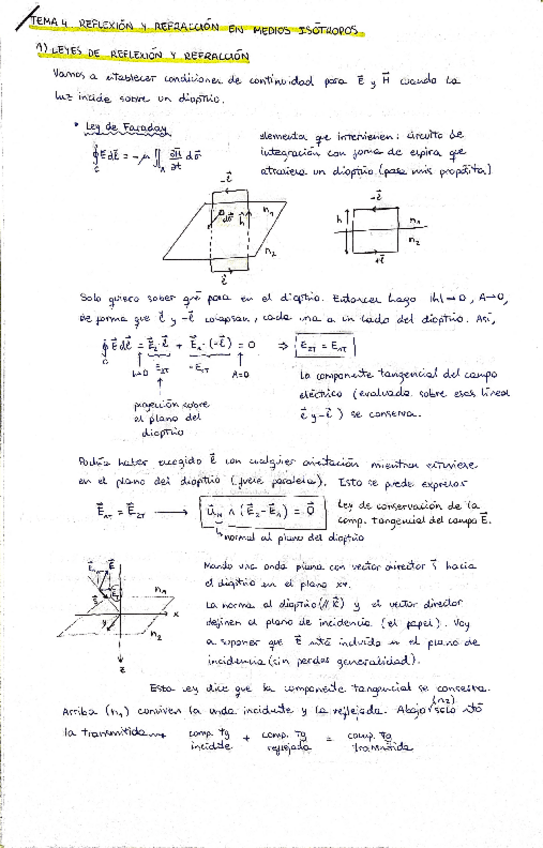 TEMA 4. REFLEXIÓN Y REFRACCIÓN EN MEDIOS ISÓTROPOS.
1) LEYES DE REFLEXIÓN Y REFRACCIÓN
Vamos a establecer condiciones de continuidad para E⃗ y H⃗ cuando la
luz incide sobre un dioptrio.
• Ley de Faraday
∮_C E⃗ dℓ⃗ = -μ ∬_A ∂H⃗/∂t dσ⃗
elementos que intervienen: circuito de
integración con forma de espira que
atraviesa un dioptrio (para mis propósitos)
-ℓ⃗
dσ⃗ h⃗ n₁
n₂
ℓ⃗
-ℓ⃗
h n₁
n₂
+ℓ⃗
Solo quiero saber qué pasa en el dioptrio. Entonces hago |h|→0, A→0,
de forma que ℓ⃗ y -ℓ⃗ colapsan, cada una a un lado del dioptrio. Así,
∮_C E⃗ dℓ⃗ = E⃗₂·ℓ⃗ + E⃗₁·(-ℓ⃗) = 0 ⇒ E₂T = E₁T
h→0 E₂T -E₁T A=0
proyección sobre
el plano del
dioptrio
La componente tangencial del campo
eléctrico (evaluada sobre esas líneas
ℓ⃗ y -ℓ⃗) se conserva.
Podría haber escogido ℓ⃗ con cualquier orientación mientras estuviese
en el plano del dioptrio (fuese paralela). Esto se puede expresar
E⃗₁T = E⃗₂T → u⃗_N ∧ (E⃗₂ - E⃗₁) = 0⃗
Ley de conservación de la
comp. tangencial del campo E⃗.
normal al plano del dioptrio
n₁
x
y
n₂
z
Mando una onda plana con vector director s⃗ hacia
el dioptrio en el plano xy.
La norma al dioptrio (// k⃗) y el vector director
definen el plano de incidencia (el papel). Voy
a suponer que E⃗ está incluido en el plano de
incidencia (sin perder generalidad).
Esta ley dice que la componente tangencial se conserva.
Arriba (n₁) conviven la onda incidente y la reflejada. Abajo (n₂) solo está
la transmitida → comp. Tg incidte + comp. Tg reflejada = comp. Tg transmitida